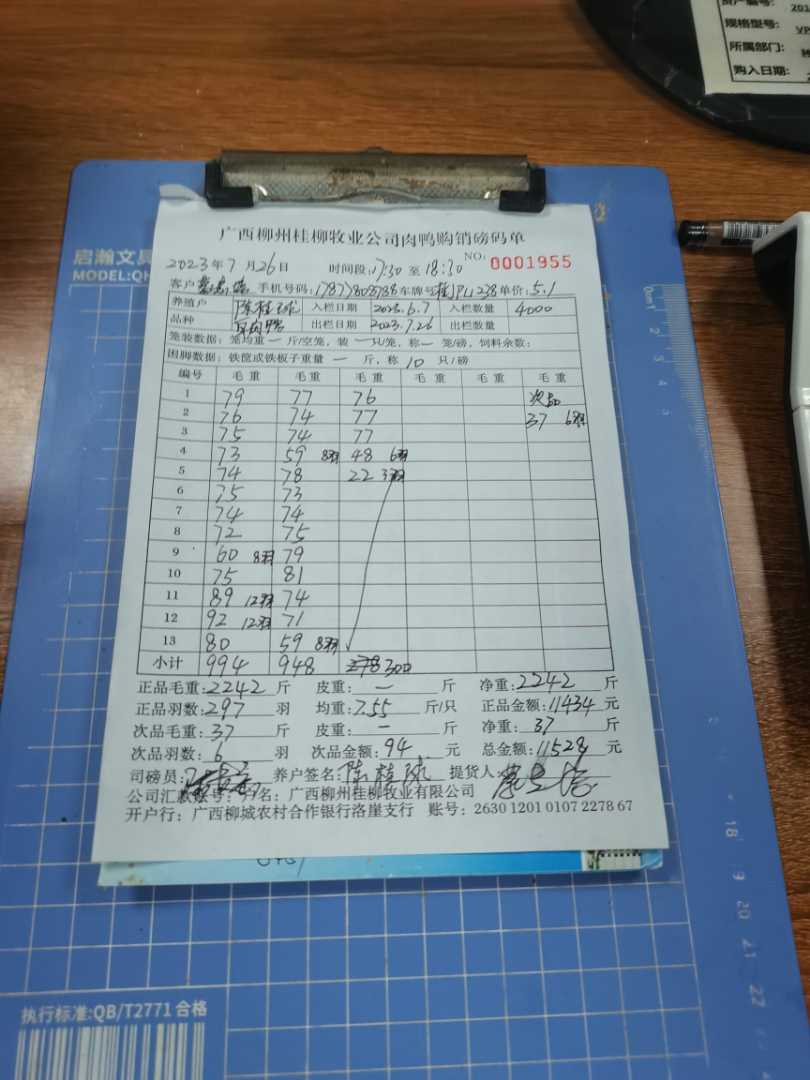 资产编号: 201
规格型号: VP
所属部门:
购入日期: 2
启瀚文具
MODEL:QH
广西柳州桂柳牧业公司肉鸭购销磅码单
2023年7月26日 时间段:17:30至18:30 NO: 0001955
客户 手机号码:17877808788 车牌号 单价:5.1
养殖户 陈桂球 入栏日期 2023.6.7 入栏数量 4000
品种 出栏日期 2023.7.26 出栏数量
笼装数据:笼均重一斤/空笼,装一只/笼,称一笼/磅,饲料余数:
困脚数据:铁筐或铁板子重量 一 斤,称 10 只/磅
编号 毛重 毛重 毛重 毛重 毛重 毛重
1 79 77 76 次品
2 76 74 77 37 6羽
3 75 74 77
4 73 59 8羽 48 6羽
5 74 78 22 3羽
6 75 73
7 74 74
8 72 75
9 60 8羽 79
10 75 81
11 89 12羽 74
12 92 12羽 71
13 80 59 8羽
小计 994 948 278 300
正品毛重:2242斤 皮重:一斤 净重:2242斤
正品羽数:297羽 均重:7.55斤/只 正品金额:11434元
次品毛重:37斤 皮重:一斤 净重:37斤
次品羽数:6羽 次品金额:94元 总金额:11528元
司磅员: 养户签名:陈桂球 提货人:
公司汇款账号:户名:广西柳州桂柳牧业有限公司
开户行:广西柳城农村合作银行洛崖支行 账号:2630 1201 0107 2278 67
0cm 1
2
3
4
5
18
19
20
21
22
执行标准:QB/T2771 合格